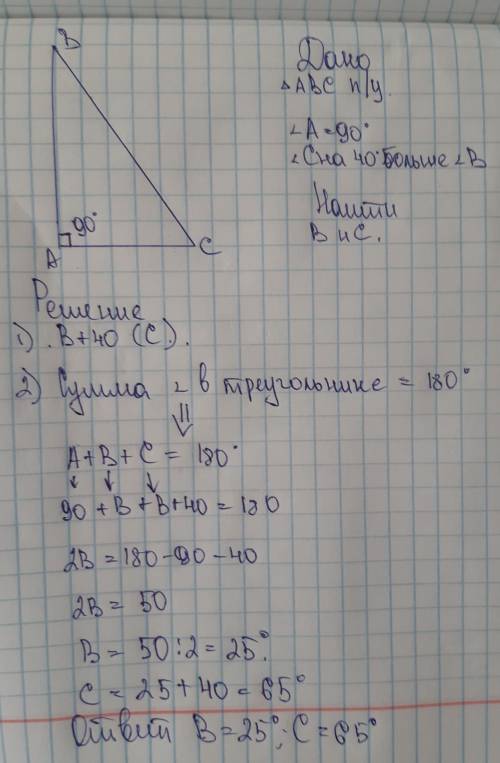 B
90°
A
C
Дано
△ABC п/у.
∠A=90°
∠C на 40° больше ∠B
Найти
B и C.
Решение
1) . B+40 (C).
2) Сумма ∠ в треугольнике = 180°
⇓
A+B+C = 180°
↓ ↓ ↓
90 + B + B + 40 = 180
2B = 180-90-40
2B = 50
B = 50:2 = 25°.
C = 25+40 = 65°
Ответ B=25°; C=65°